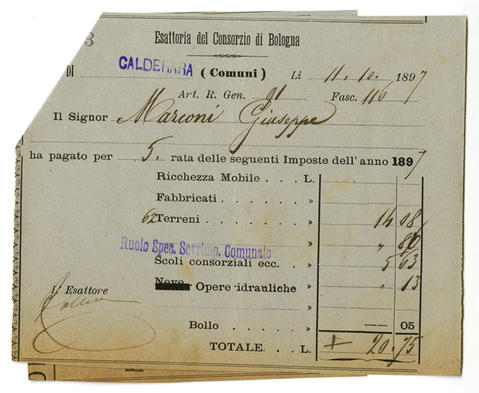 3
Esattoria del Consorzio di Bologna
DI CALDERARA (Comuni) Lì 11. 10. 1897
Art. R. Gen. 91 Fasc. 116
Il Signor Marconi Giuseppe
ha pagato per 5. rata delle seguenti Imposte dell'anno 1897
Ricchezza Mobile . . L.
Fabbricati . . . . »
62 Terreni . . . . » 14 08
Ruolo Spea. Sovrimp. Comunale " 86
Scoli consorziali ecc. . » 5 63
Neve Opere idrauliche » " 13
L'Esattore
Bollo . . . . » — 05
TOTALE. . . L. 20.75